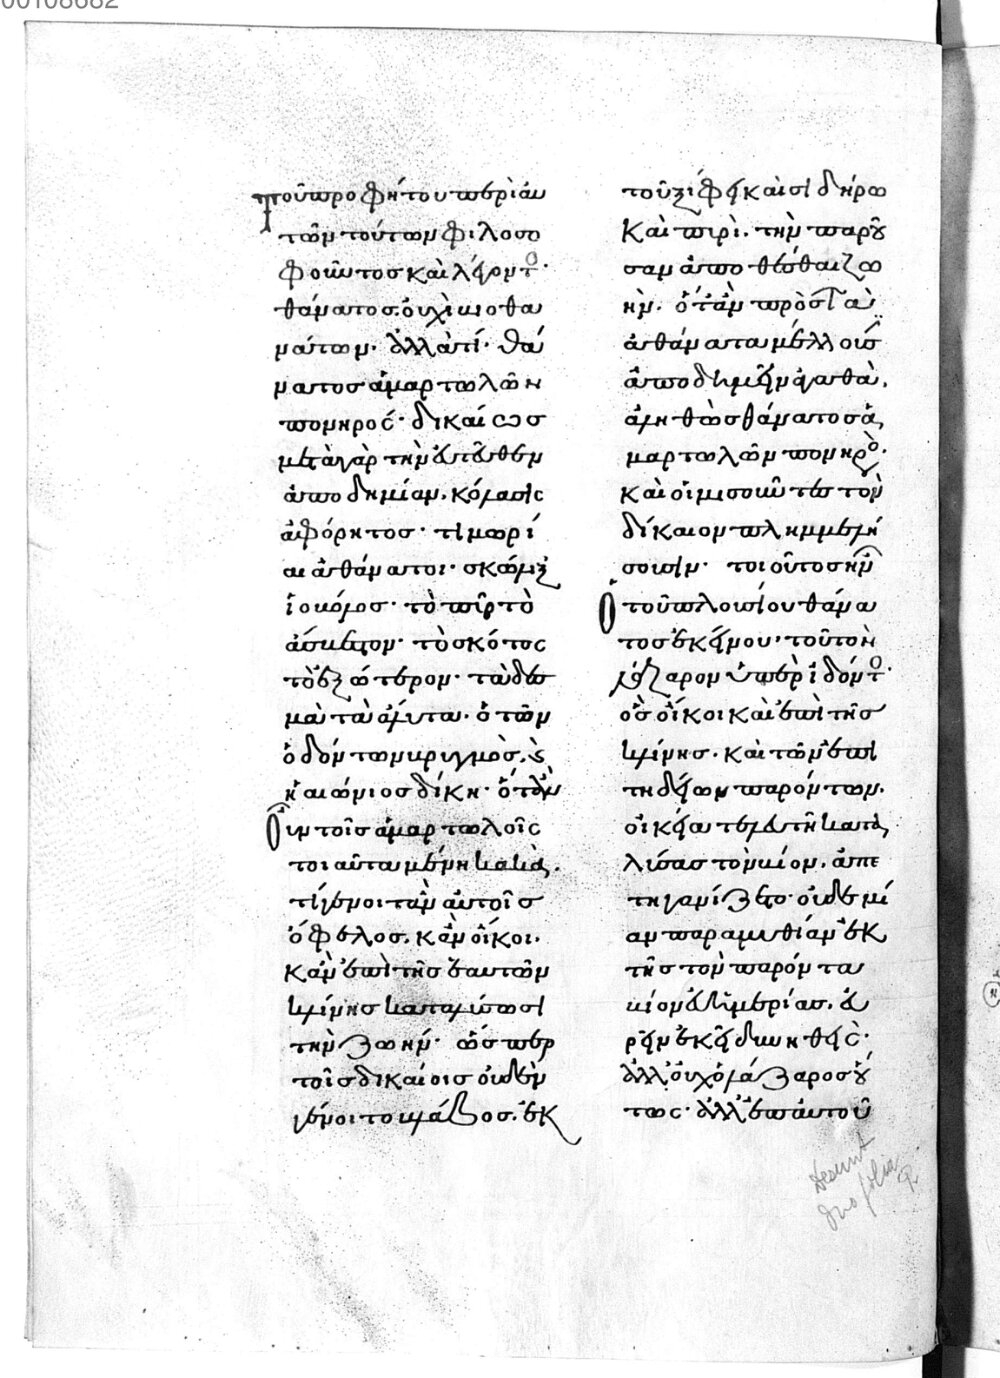 00108682
τοῦ προφήτου περὶ ἁπάν
τῶν τούτων φιλοσο
φοῦντος καὶ λέγοντο
θάνατος οὐχὶ
νάτων· ἀλλὰ τί· θά
νατος ἁμαρτωλῶν
πονηρός· δικαίως
μετὰ γὰρ τὴν ἐντεῦθεν
ἀποδημίαν, κόλασις
ἀφόρητος· τιμωρί
αι ἀθάνατοι· σκώληξ
ἰοβόλος· τὸ πῦρ τὸ
ἄσβεστον· τὸ σκότος
τὸ ἐξώτερον· τὰ δεσ
μὰ τὰ ἄλυτα· ὁ τῶν
ὀδόντων βρυγμὸς, καὶ
ἡ αἰώνιος δίκη· ὅταν
οὖν τοῖς ἁμαρτωλοῖς
τοιαῦτα μένη κακὰ,
τί γένοιτ' ἂν αὐτοῖς
ὄφελος, κἂν οἴκοι,
κἂν ἐπὶ τῆς ἑαυτῶν
κλίνης καταλύσωσι
τὴν ζωήν· ὥσπερ
τοῖς δικαίοις οὐδὲν
γένοιτο βλάβος, ἐκ
τοῦ ξίφει καὶ σιδήρω
καὶ πυρὶ, τὴν παροῦ
σαν ἀποθέσθαι ζω
ὴν, ὅταν πρὸς τὰ
ἀθάνατα μέλλοις
ἀποδημεῖν ἀγαθὰ,
ἀληθῶς θάνατος ἁ
μαρτωλῶν πονηρὸ·
καὶ οἱ μισοῦντες τὸν
δίκαιον πλημμελή
σουσίν· τοιοῦτος ἦν
ὁ τοῦ πλουσίου θάνα
τος ἐκείνου· τοῦ τὸν
λάζαρον ὑπεριδόντο·
ὃς οἴκοι καὶ ἐπὶ τῆς
κλίνης, καὶ τῶν ἐπι
τηδείων παρόντων,
οἰκεία τελευτῆ κατα
λύσας τὸν βίον, ἀπε
τηγανίζετο· οὐδεμί
αν παραμυθίαν ἐκ
τῆς τὸν παρόντα
βίον εὐημερίας, εὑ
ρεῖν ἐκεῖ δυνηθεὶς·
ἀλλ' οὐχ ὁ λάζαρος οὕ
τως· ἀλλ' ἐπ' αὐτοῦ
desunt
duo folia